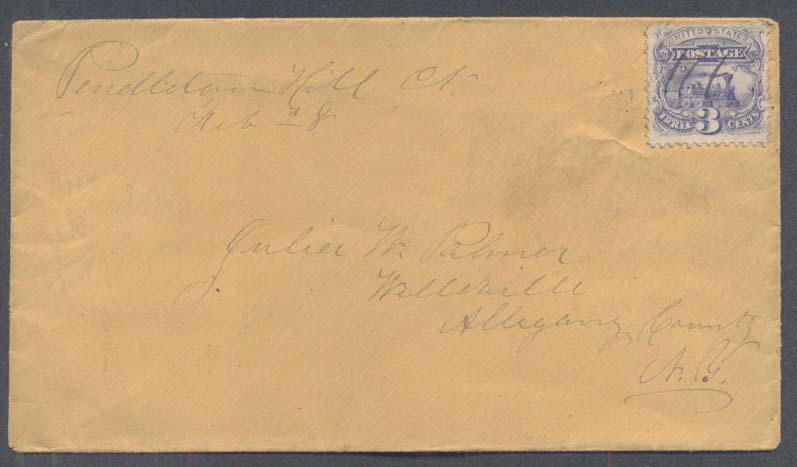 UNITED STATES
POSTAGE
THREE 3 CENTS
Pendleton Hill Ct.
Feb 28
Julia W. Palmer
Wellsville
Allegany County
N.Y.